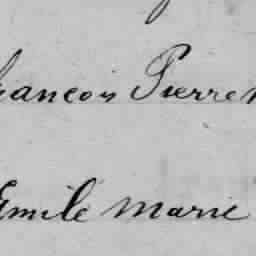 rancois Pierre
Emile Marie